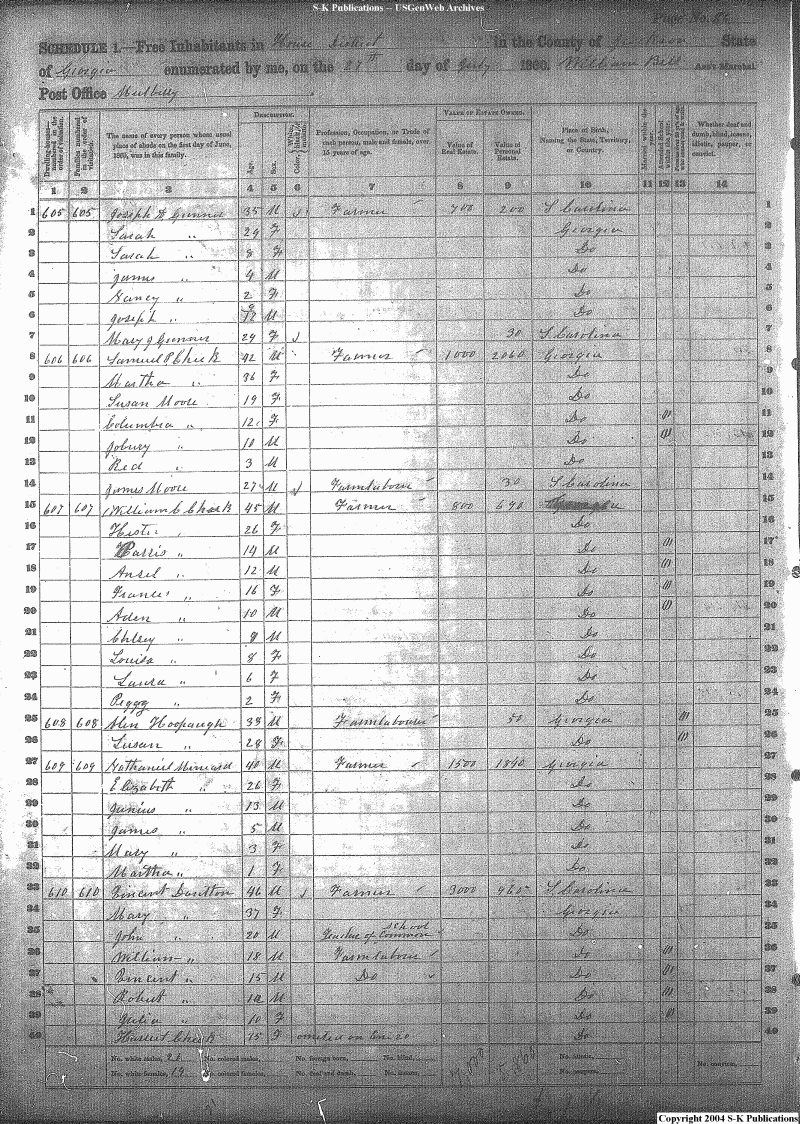 S-K Publications -- USGenWeb Archives
Page No. 86
SCHEDULE 1.—Free Inhabitants in House District in the County of Jackson State
of Georgia enumerated by me, on the 27th day of July 1860. William Bell Ass't Marshal
Post Office Mulberry
DESCRIPTION. VALUE OF ESTATE OWNED.
Dwelling-houses numbered in the order of visitation. Families numbered in the order of visitation. The name of every person whose usual place of abode on the first day of June, 1860, was in this family. Age. Sex. Color, Profession, Occupation, or Trade of each person, male and female, over 15 years of age. Value of Real Estate. Value of Personal Estate. Place of Birth, Naming the State, Territory, or Country. Married within the year. Attended School within the year. Whether deaf and dumb, blind, insane, idiotic, pauper, or convict.
1 2 3 4 5 6 7 8 9 10 11 12 13 14
1 605 605 Joseph Gunner 35 M Farmer 700 200 S Carolina 1
2 Sarah " 29 F Georgia 2
3 Sarah " 8 F Do 3
4 James " 4 M Do 4
5 Nancy " 2 F Do 5
6 Joseph " M Do 6
7 Mary J Gunner 29 F 30 S Carolina 7
8 606 606 Samuel P Cheek 42 M Farmer 1000 2060 Georgia 8
9 Martha " 36 F Do 9
10 Susan Moore 19 F Do 10
11 Columbia " 12 F Do (1) 11
12 " 10 M Do (1) 12
13 Red " 3 M Do 13
14 James Moore 27 M Farmlabour 30 S Carolina 14
15 607 607 William C Cheek 45 M Farmer 800 690 15
16 Hester " 26 F Do 16
17 Harris " 14 M Do (1) 17
18 Ansel " 12 M Do (1) 18
19 Frances " 16 F Do (1) 19
20 Aden " 10 M Do (1) 20
21 " 9 M Do 21
22 Louisa " 8 F Do 22
23 Laura " 6 F Do 23
24 Peggy " 2 F Do 24
25 608 608 Alen Hoopaugh 33 M Farmlabour 50 Georgia (1) 25
26 Susan " 28 F Do (1) 26
27 609 609 Nathaniel Miniard 40 M Farmer 1500 1840 Georgia 27
28 Elizabeth " 26 F Do 28
29 Junius " 13 M Do 29
30 James " 5 M Do 30
31 Mary " 3 F Do 31
32 Martha " 1 F Do 32
33 610 610 Vincent Daulton 46 M Farmer 3000 965 S Carolina 33
34 Mary " 37 F Georgia 34
35 John " 20 M Teacher of Common School Do 35
36 William " 18 M Farmlabour Do (1) 36
37 Vincent " 15 M Do Do (1) 37
38 Robert " 12 M Do (1) 38
39 Julia " 10 F Do (1) 39
40 Harriet Cheek 15 F omited on line 20 Do 40
No. white males, 21 No. colored males, No. foreign born, No. blind,
No. white females, 19 No. colored females, No. deaf and dumb, No. insane, No. idiotic, No. paupers, No. convicts,
Copyright 2004 S-K Publications